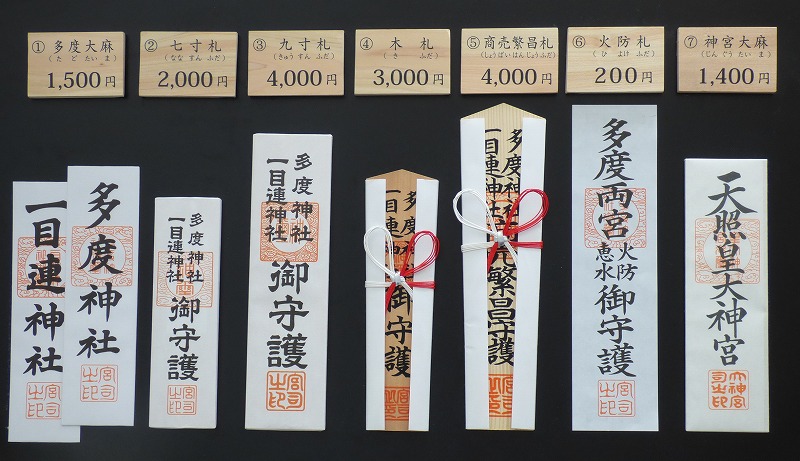 ① 多度大麻
(たどたいま)
1,500円
② 七寸札
(ななすんふだ)
2,000円
③ 九寸札
(きゅうすんふだ)
4,000円
④ 木札
(きふだ)
3,000円
⑤ 商売繁昌札
(しょうばいはんじょうふだ)
4,000円
⑥ 火防札
(ひよけふだ)
200円
⑦ 神宮大麻
(じんぐうたいま)
1,400円
一目連神社
宮司之印
多度神社
宮司之印
多度神社
一目連神社
御守護
宮司之印
多度神社
一目連神社
御守護
宮司之印
多度神社
一目連神社
御守護
多度神社
一目連神社
繁昌守護
宮司之印
多度両宮
火防
恵水
御守護
宮司之印
天照皇大神宮
大神宮司之印